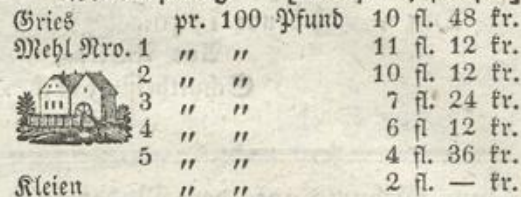 Gries pr. 100 Pfund 10 fl. 48 kr.
Mehl Nro. 1 „ „ 11 fl. 12 kr.
2 „ „ 10 fl. 12 kr.
3 „ „ 7 fl. 24 kr.
4 „ „ 6 fl 12 kr.
5 „ „ 4 fl. 36 kr.
Kleien „ „ 2 fl. — kr.